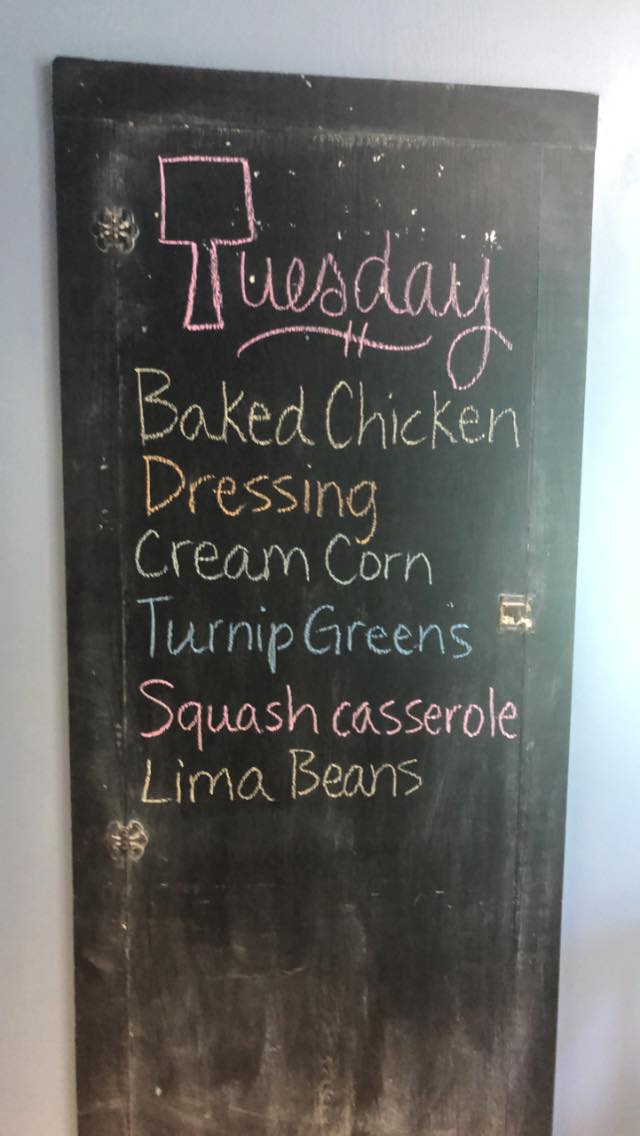 Tuesday
Baked Chicken
Dressing
Cream Corn
Turnip Greens
Squash casserole
Lima Beans